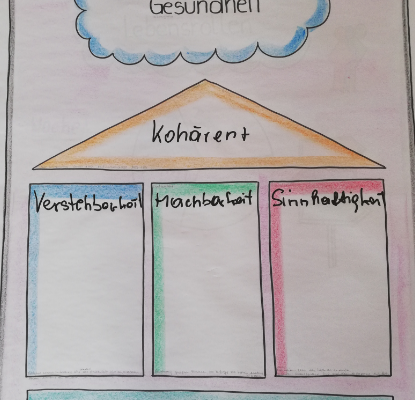 Gesundheit
Kohärent
Verstehbarkeit Machbarkeit Sinnhaftigkeit